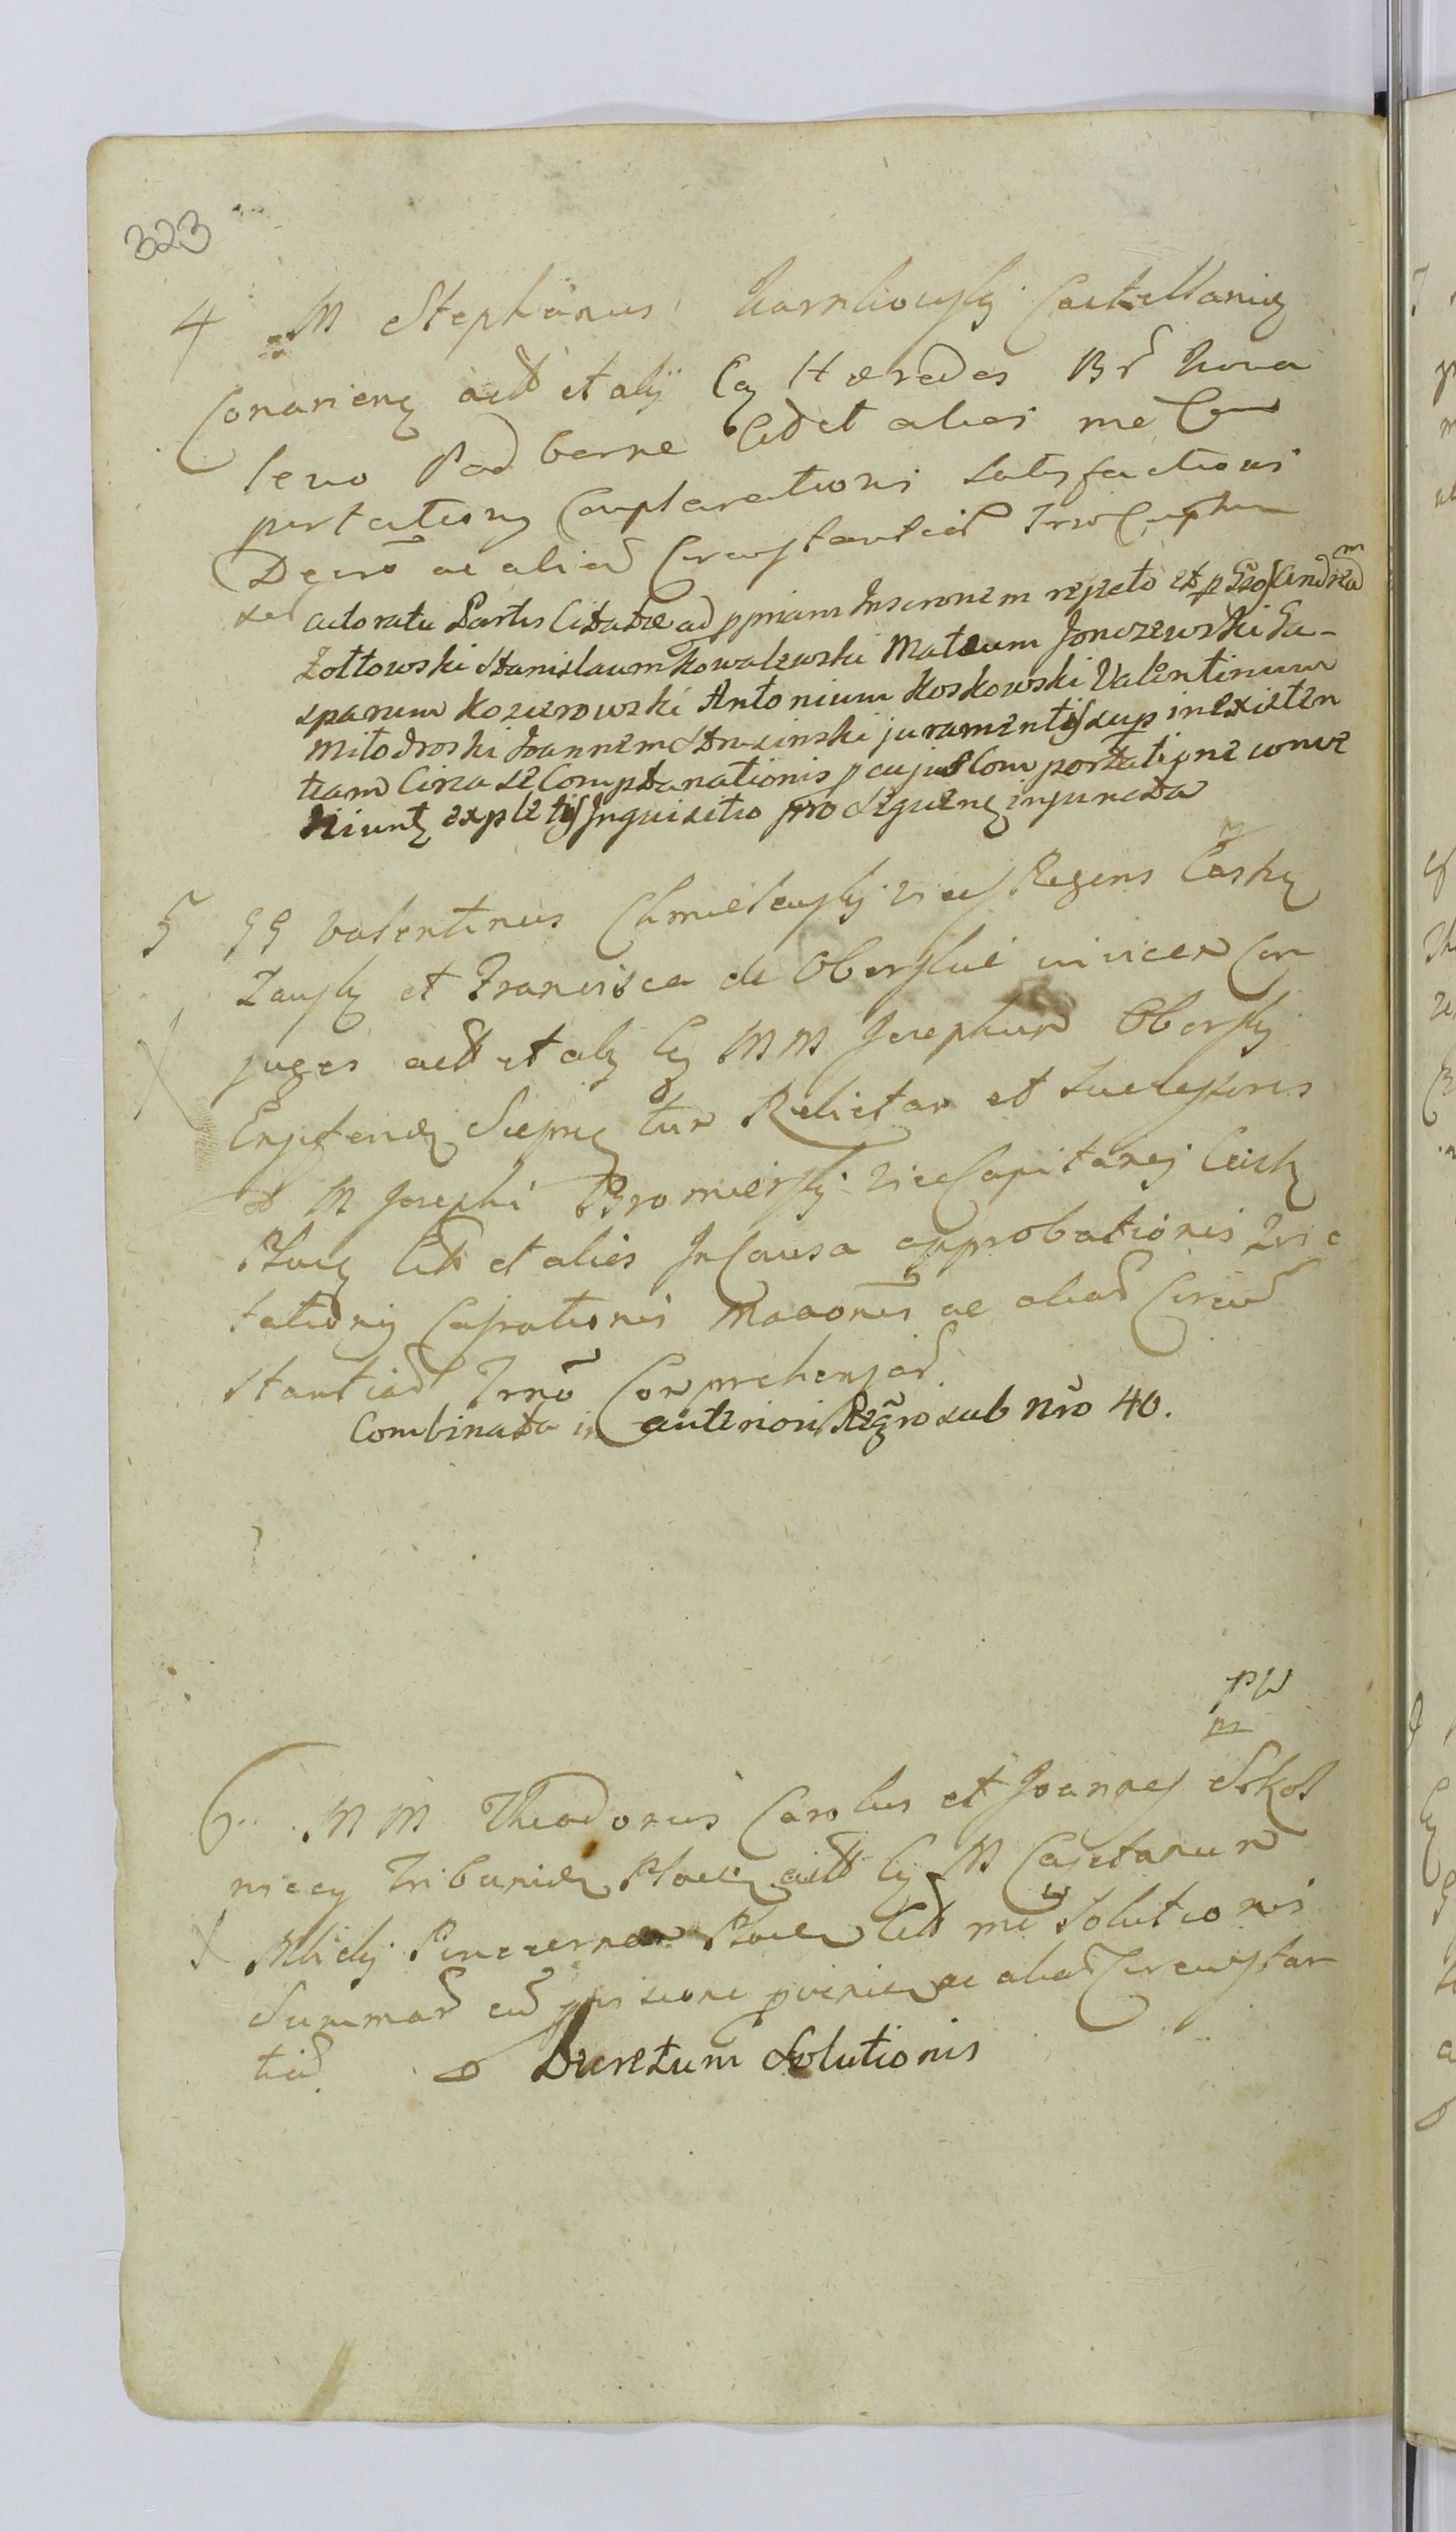 323
4 M Stephanus Karnkowskj Castellanię
Conarienę actt et alÿ Cȩ Hæredes Br̃ Nova
levo Podborne Citd et alios me Com
portationę Complanationis Satisfactionis
Decrõ ac aliad Circumstantiad Trno Comphen
sad
actoratu Partis Citatæ ad ppriam Inscronem rejecto et p Gsos Andream
Zołtowski Stanislaum Kowalewski Mateum Jonczewski Ga-
sparum Kozierowski Antonium Koskowski Valentinum
Miłodroski Joannem Struzinski juramentis sup inexisten
tiam Circa se Complanationis p cujus Comportatione conve
niuntę expletis Inquisitio pro Seguenę injuncta
5 GG Valentinus Chmielewskj vices Regens Castrę
Zauskę et Francisca de Oberskie invicem Con
juges actt et alÿ Cȩ MM Josephum Oberskj
Relictam et Successores
M Josephi Bromierskj viceCapitanej Castr
Plocę Citt et alios In Causa approbationis
tationis Captationis ac aliad Circum
stantiad Trnõ Comprehensad.
Combinata in anteriori Regro sub nro 40.
pw
m
6 MM Theodorus Carolus et Joannes Sokol
niccy Tribunidę Plocę actt Cȩ M Cajetanum
Mlickj Pincernam Plocen Citt me Solutionis
Summad cũ provisione pvenien ac aliad Circumstan
tiad. Decretum Solutionis